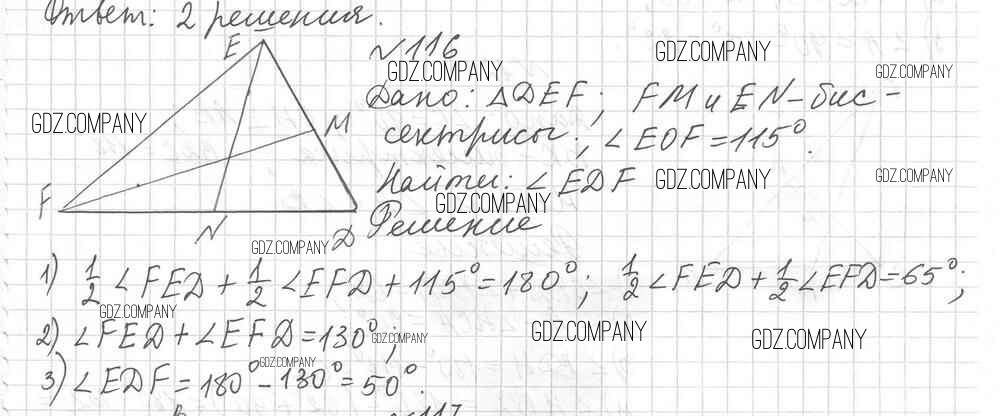 Ответ: 2 решения.
E
№116
GDZ.COMPANY
GDZ.COMPANY
GDZ.COMPANY
Дано: ΔDEF; FM и EN - бис-
GDZ.COMPANY
M
сектрисы; ∠EOF = 115°.
Найти: ∠EDF
GDZ.COMPANY
GDZ.COMPANY
F
GDZ.COMPANY
N
D
Решение
GDZ.COMPANY
1) 1/2 ∠FED + 1/2 ∠EFD + 115° = 180°; 1/2 ∠FED + 1/2 ∠EFD = 65°;
GDZ.COMPANY
2) ∠FED + ∠EFD = 130°;
GDZ.COMPANY
GDZ.COMPANY
GDZ.COMPANY
GDZ.COMPANY
3) ∠EDF = 180° - 130° = 50°.
№117